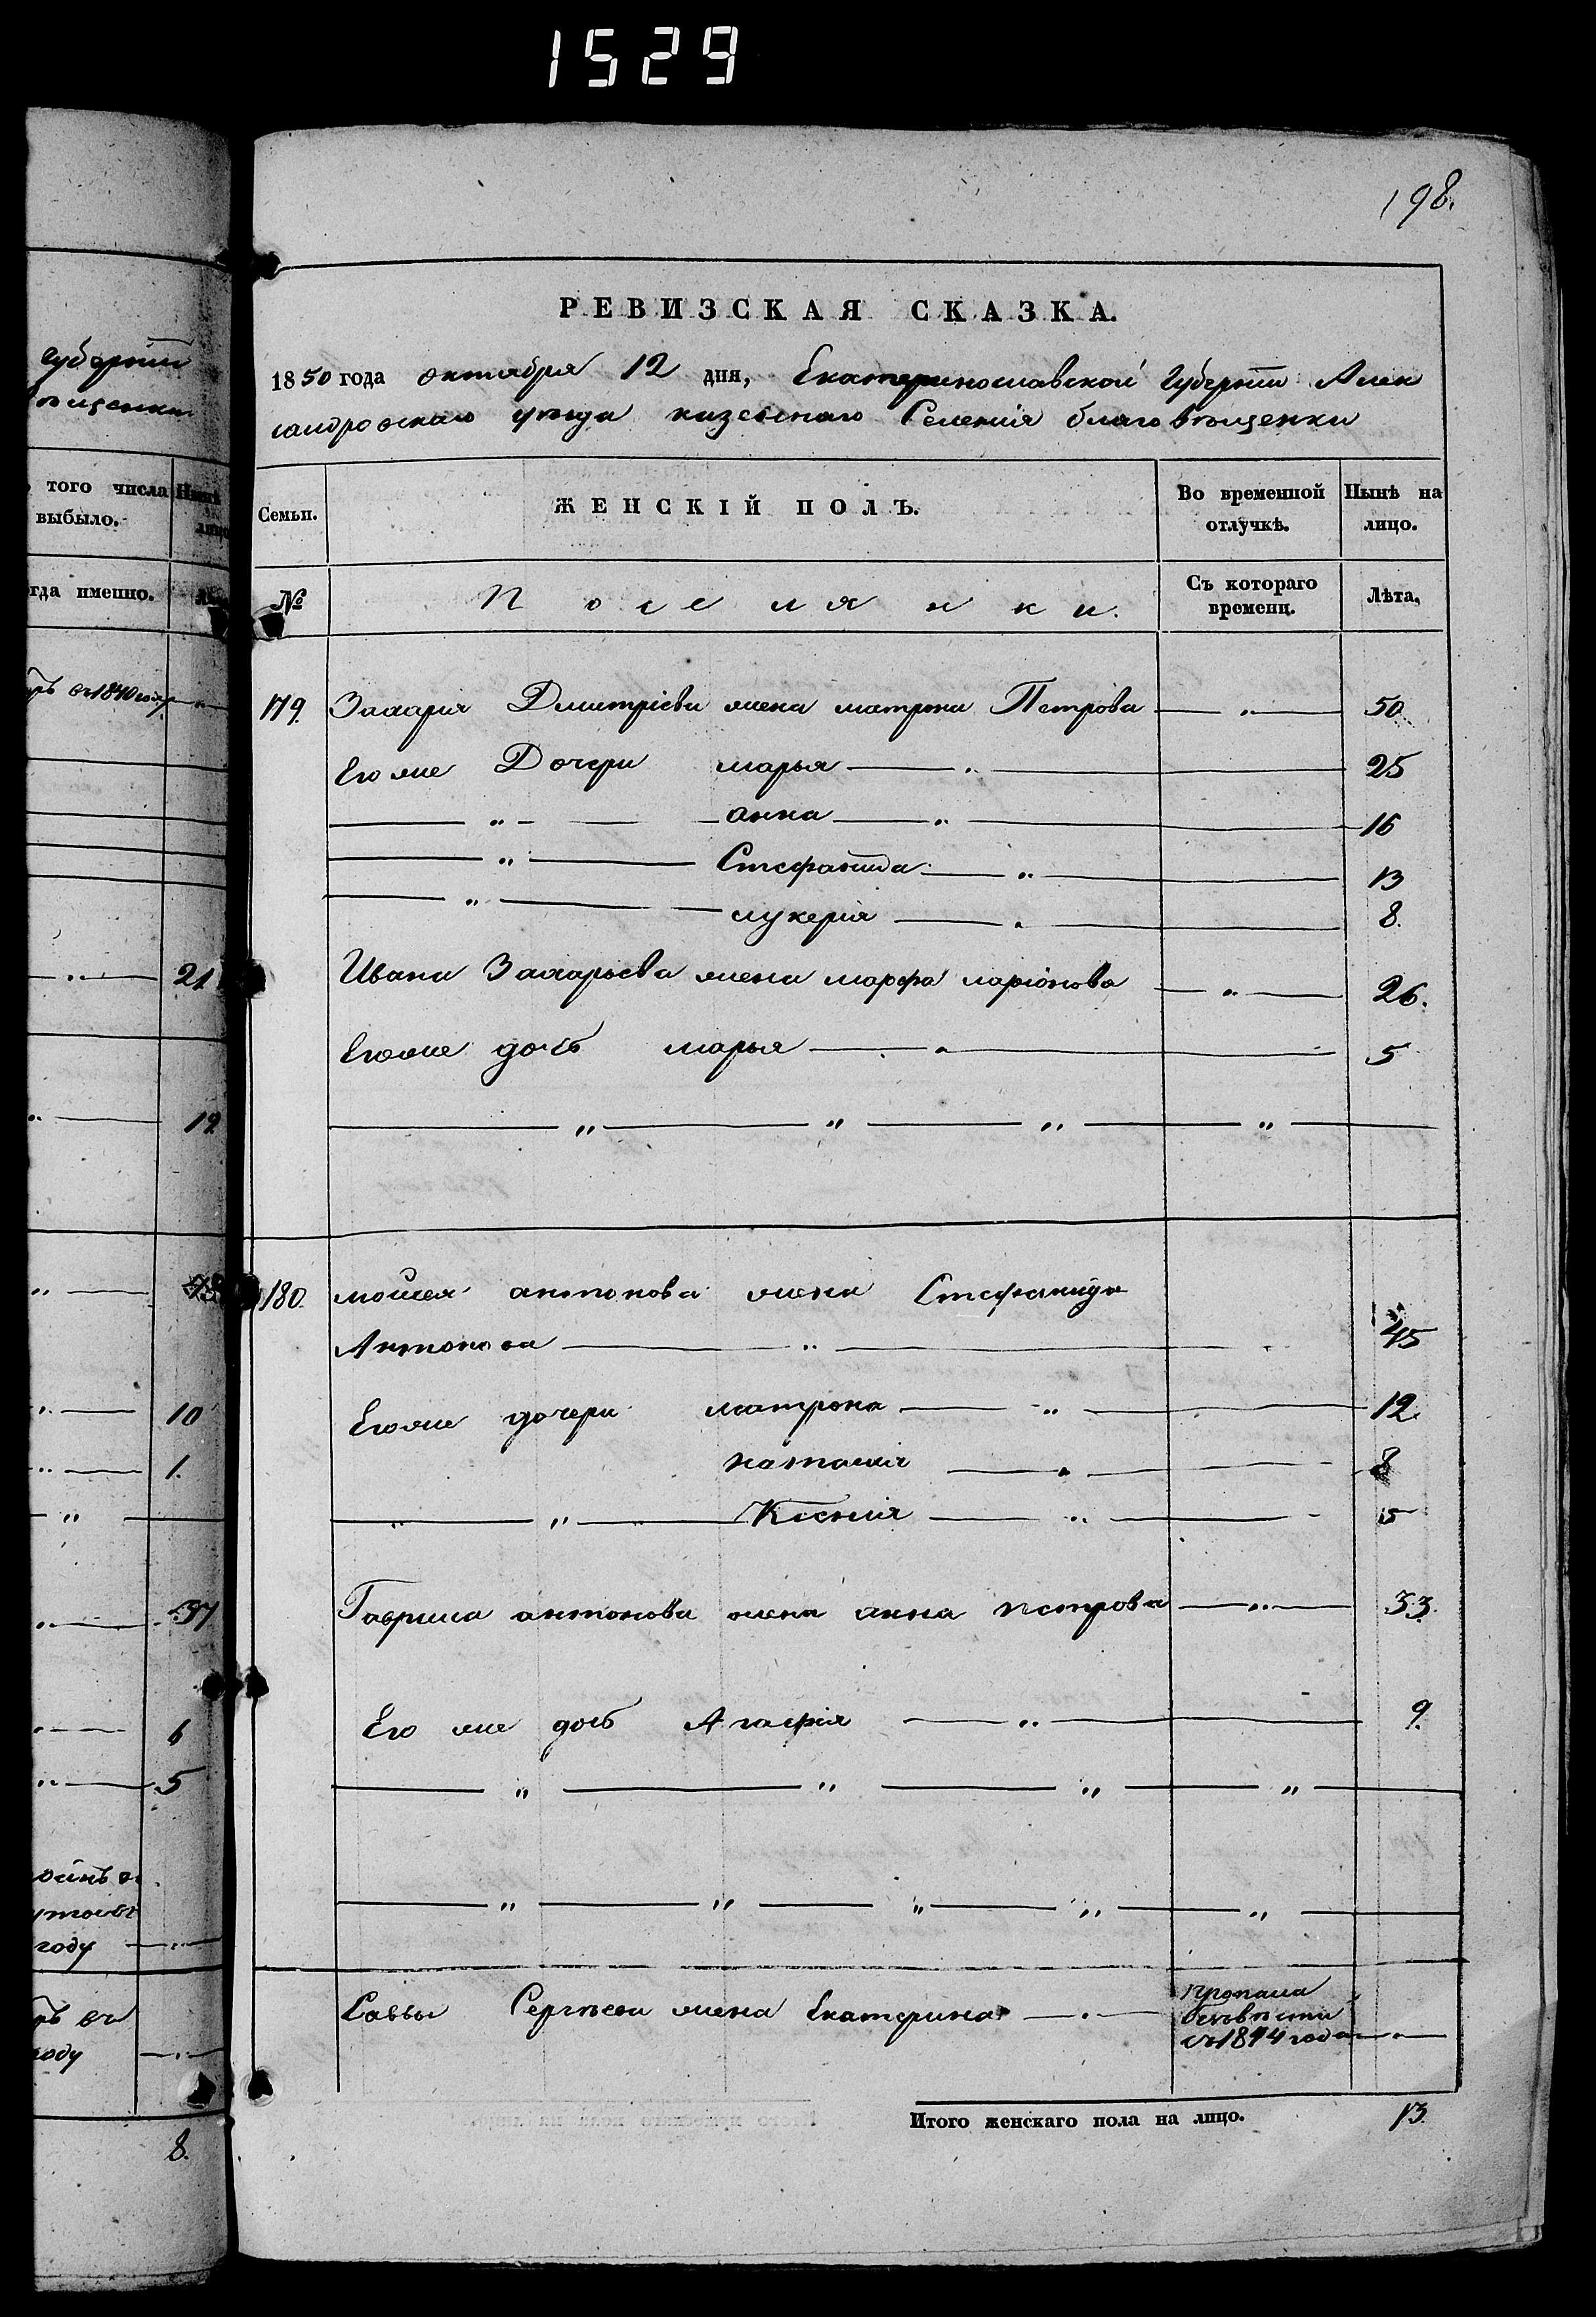 1529
198.
РЕВИЗСКАЯ СКАЗКА.
губернии
1850 года октября 12 дня, Екатеринославской губернии Алек
сандровскаго уѣзда казеннаго Селения благовѣщенки
того числа
выбыло.
Нынѣ
Семьи.
ЖЕНСКІЙ ПОЛЪ.
Во временной
отлучкѣ.
Нынѣ на
лицо.
именно.
№
Поселянки.
Съ котораго
времени.
Лѣта.
179. Захария Дмитріева жена матрона Петрова 50
Его же Дочери марья 25
анна 16
Стефанида 13
лукерія 8.
21
Ивана Захарьева жена марфа ларіонова 26.
Егоже дочь марья 5
19
180. мойсея антонова жена Стефанида
Антонова 45
10
Егоже дочери матрона 12.
1.
наталия 8
Ксения 5
37
Гаврила антонова жена анна петрова 33.
6
Его же дочь Агафия 9.
5
году
Саввы Сергѣева жена Екатерина пропала
безвѣсти
съ 1844 года
Итого женскаго пола на лицо. 13.
8.